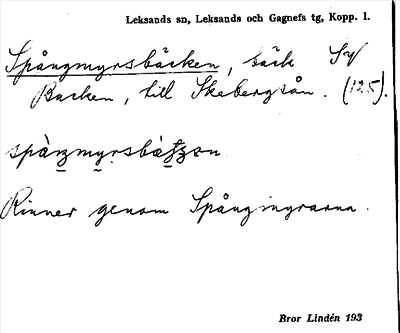 Leksands sn, Leksands och Gagnefs tg, Kopp. l.
Spångmyrsbäcken, bäck Sy
Backen, till Skebergsån. (125).
Rinner genom Spångmyrarna.
Bror Lindén 193